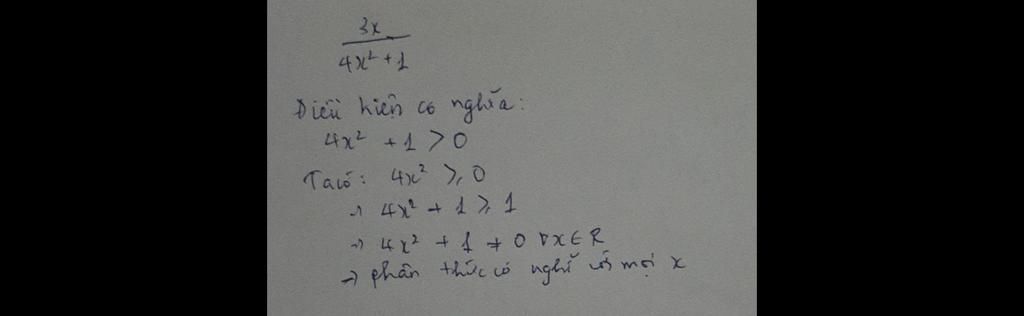 3x
4x² + 1
Điều kiện có nghĩa:
4x² + 1 > 0
Ta có: 4x² ≥ 0
→ 4x² + 1 ≥ 1
→ 4x² + 1 ≠ 0 ∀x ∈ R
→ phân thức có nghĩ với mọi x